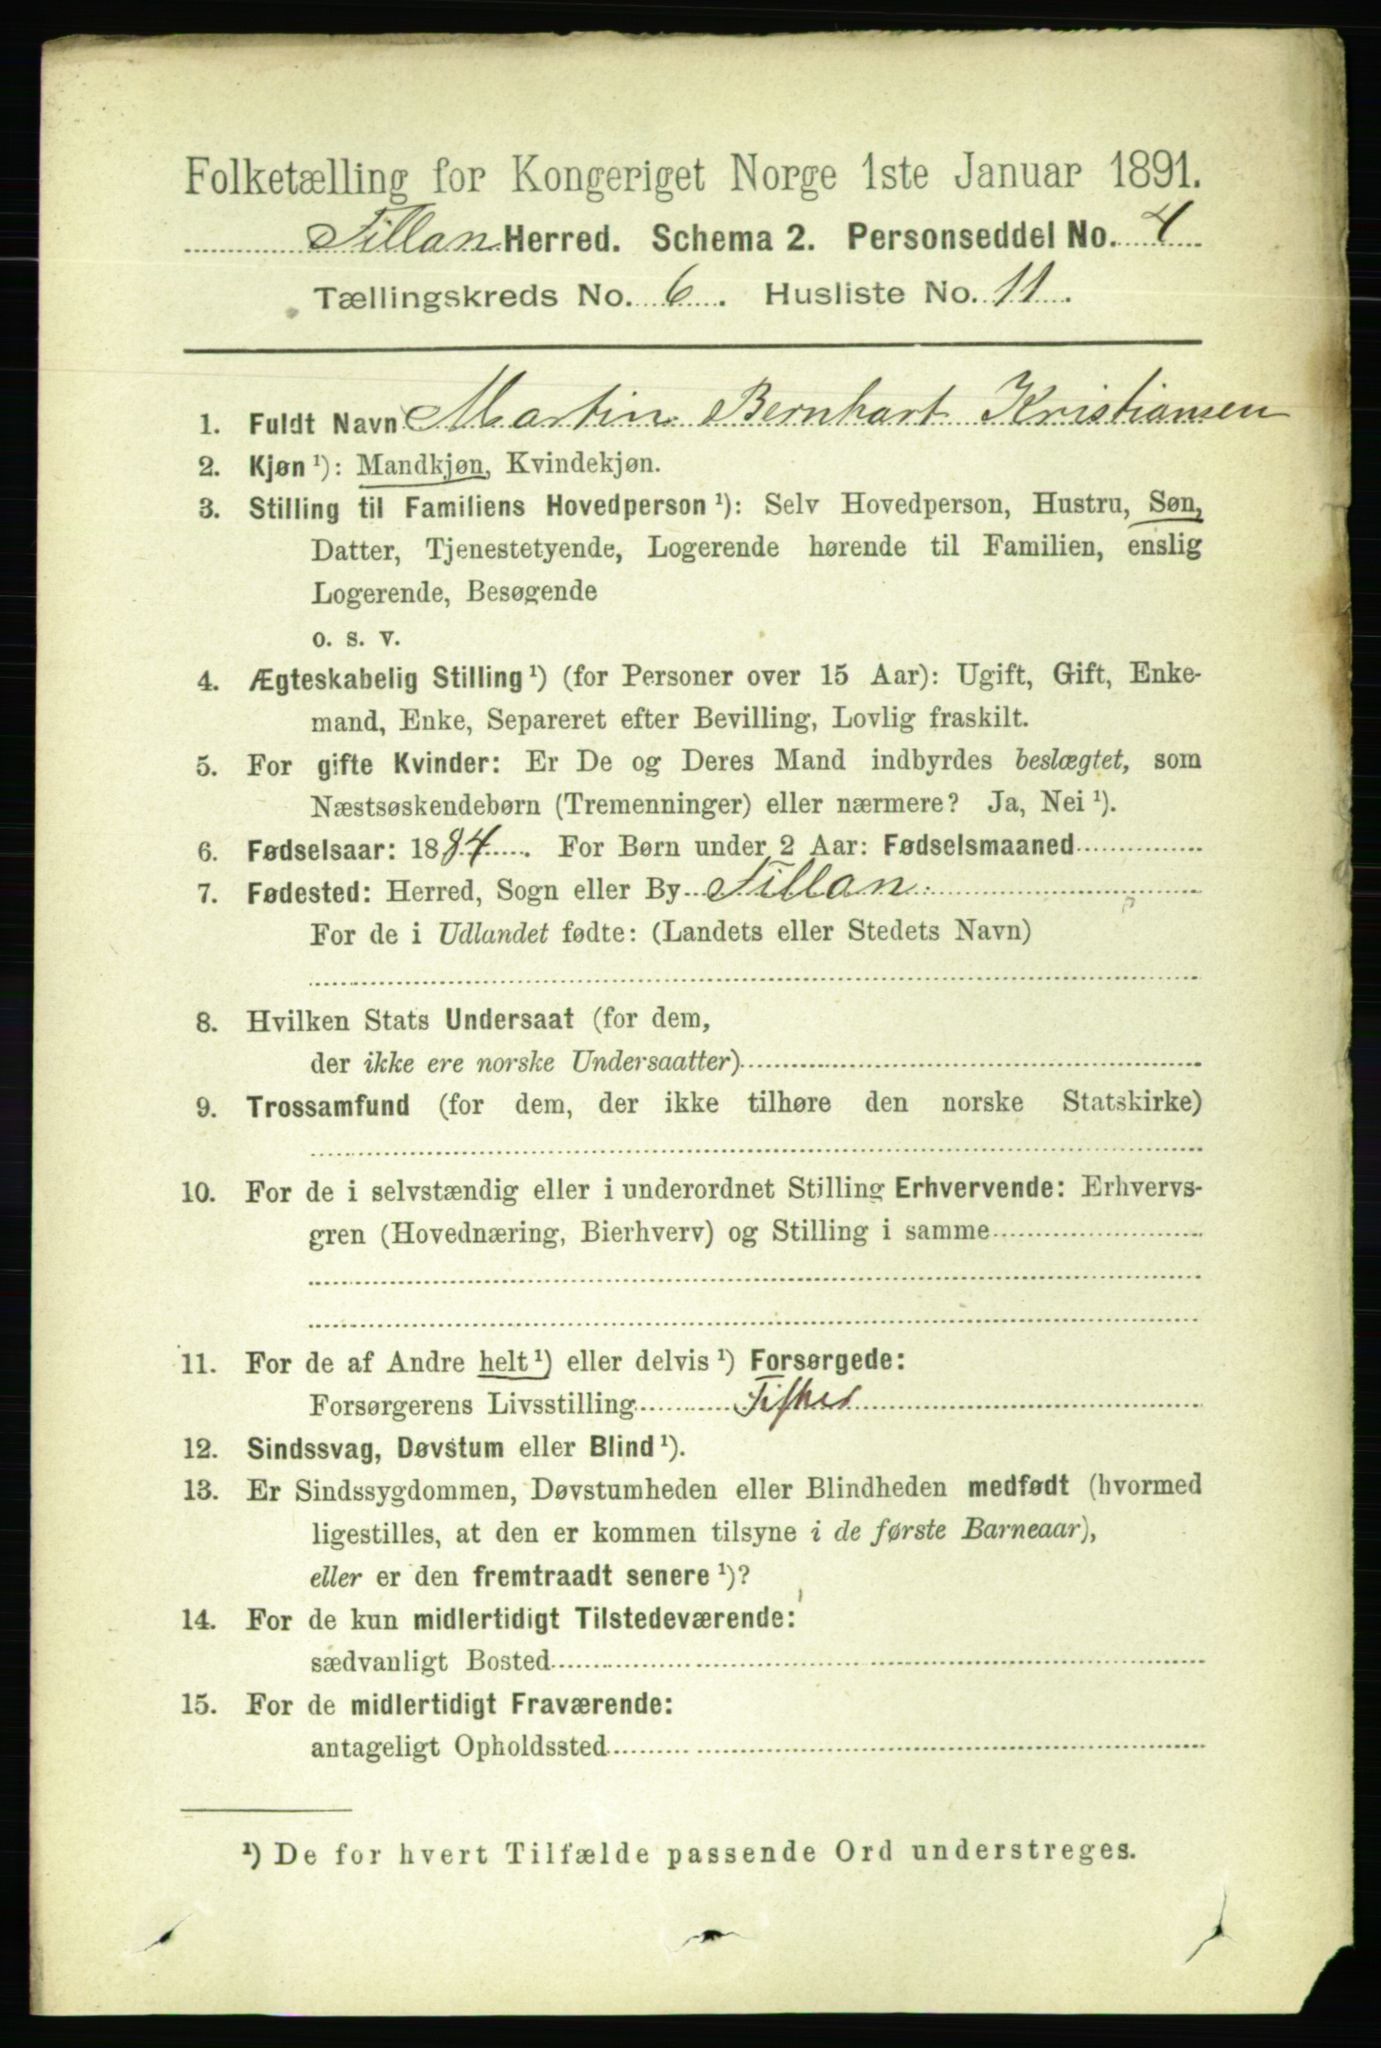 Folketælling for Kongeriget Norge 1ste Januar 1891.
Fillan Herred. Schema 2. Personseddel No. 4
Tællingskreds No. 6. Husliste No. 11.
1. Fuldt Navn Martin Bernhart Kristiansen
2. Kjøn ¹): Mandkjøn, Kvindekjøn.
3. Stilling til Familiens Hovedperson ¹): Selv Hovedperson, Hustru, Søn,
Datter, Tjenestetyende, Logerende hørende til Familien, enslig
Logerende, Besøgende
o. s. v.
4. Ægteskabelig Stilling ¹) (for Personer over 15 Aar): Ugift, Gift, Enke-
mand, Enke, Separeret efter Bevilling, Lovlig fraskilt.
5. For gifte Kvinder: Er De og Deres Mand indbyrdes beslægtet, som
Næstsøskendebørn (Tremenninger) eller nærmere? Ja, Nei ¹).
6. Fødselsaar: 1884. For Børn under 2 Aar: Fødselsmaaned
7. Fødested: Herred, Sogn eller By Fillan
For de i Udlandet fødte: (Landets eller Stedets Navn)
8. Hvilken Stats Undersaat (for dem,
der ikke ere norske Undersaatter)
9. Trossamfund (for dem, der ikke tilhøre den norske Statskirke)
10. For de i selvstændig eller i underordnet Stilling Erhvervende: Erhvervs-
gren (Hovednæring, Bierhverv) og Stilling i samme
11. For de af Andre helt ¹) eller delvis ¹) Forsørgede:
Forsørgerens Livsstilling Fisker
12. Sindssvag, Døvstum eller Blind ¹).
13. Er Sindssygdommen, Døvstumheden eller Blindheden medfødt (hvormed
ligestilles, at den er kommen tilsyne i de første Barneaar),
eller er den fremtraadt senere ¹)?
14. For de kun midlertidigt Tilstedeværende:
sædvanligt Bosted
15. For de midlertidigt Fraværende:
antageligt Opholdssted
¹) De for hvert Tilfælde passende Ord understreges.